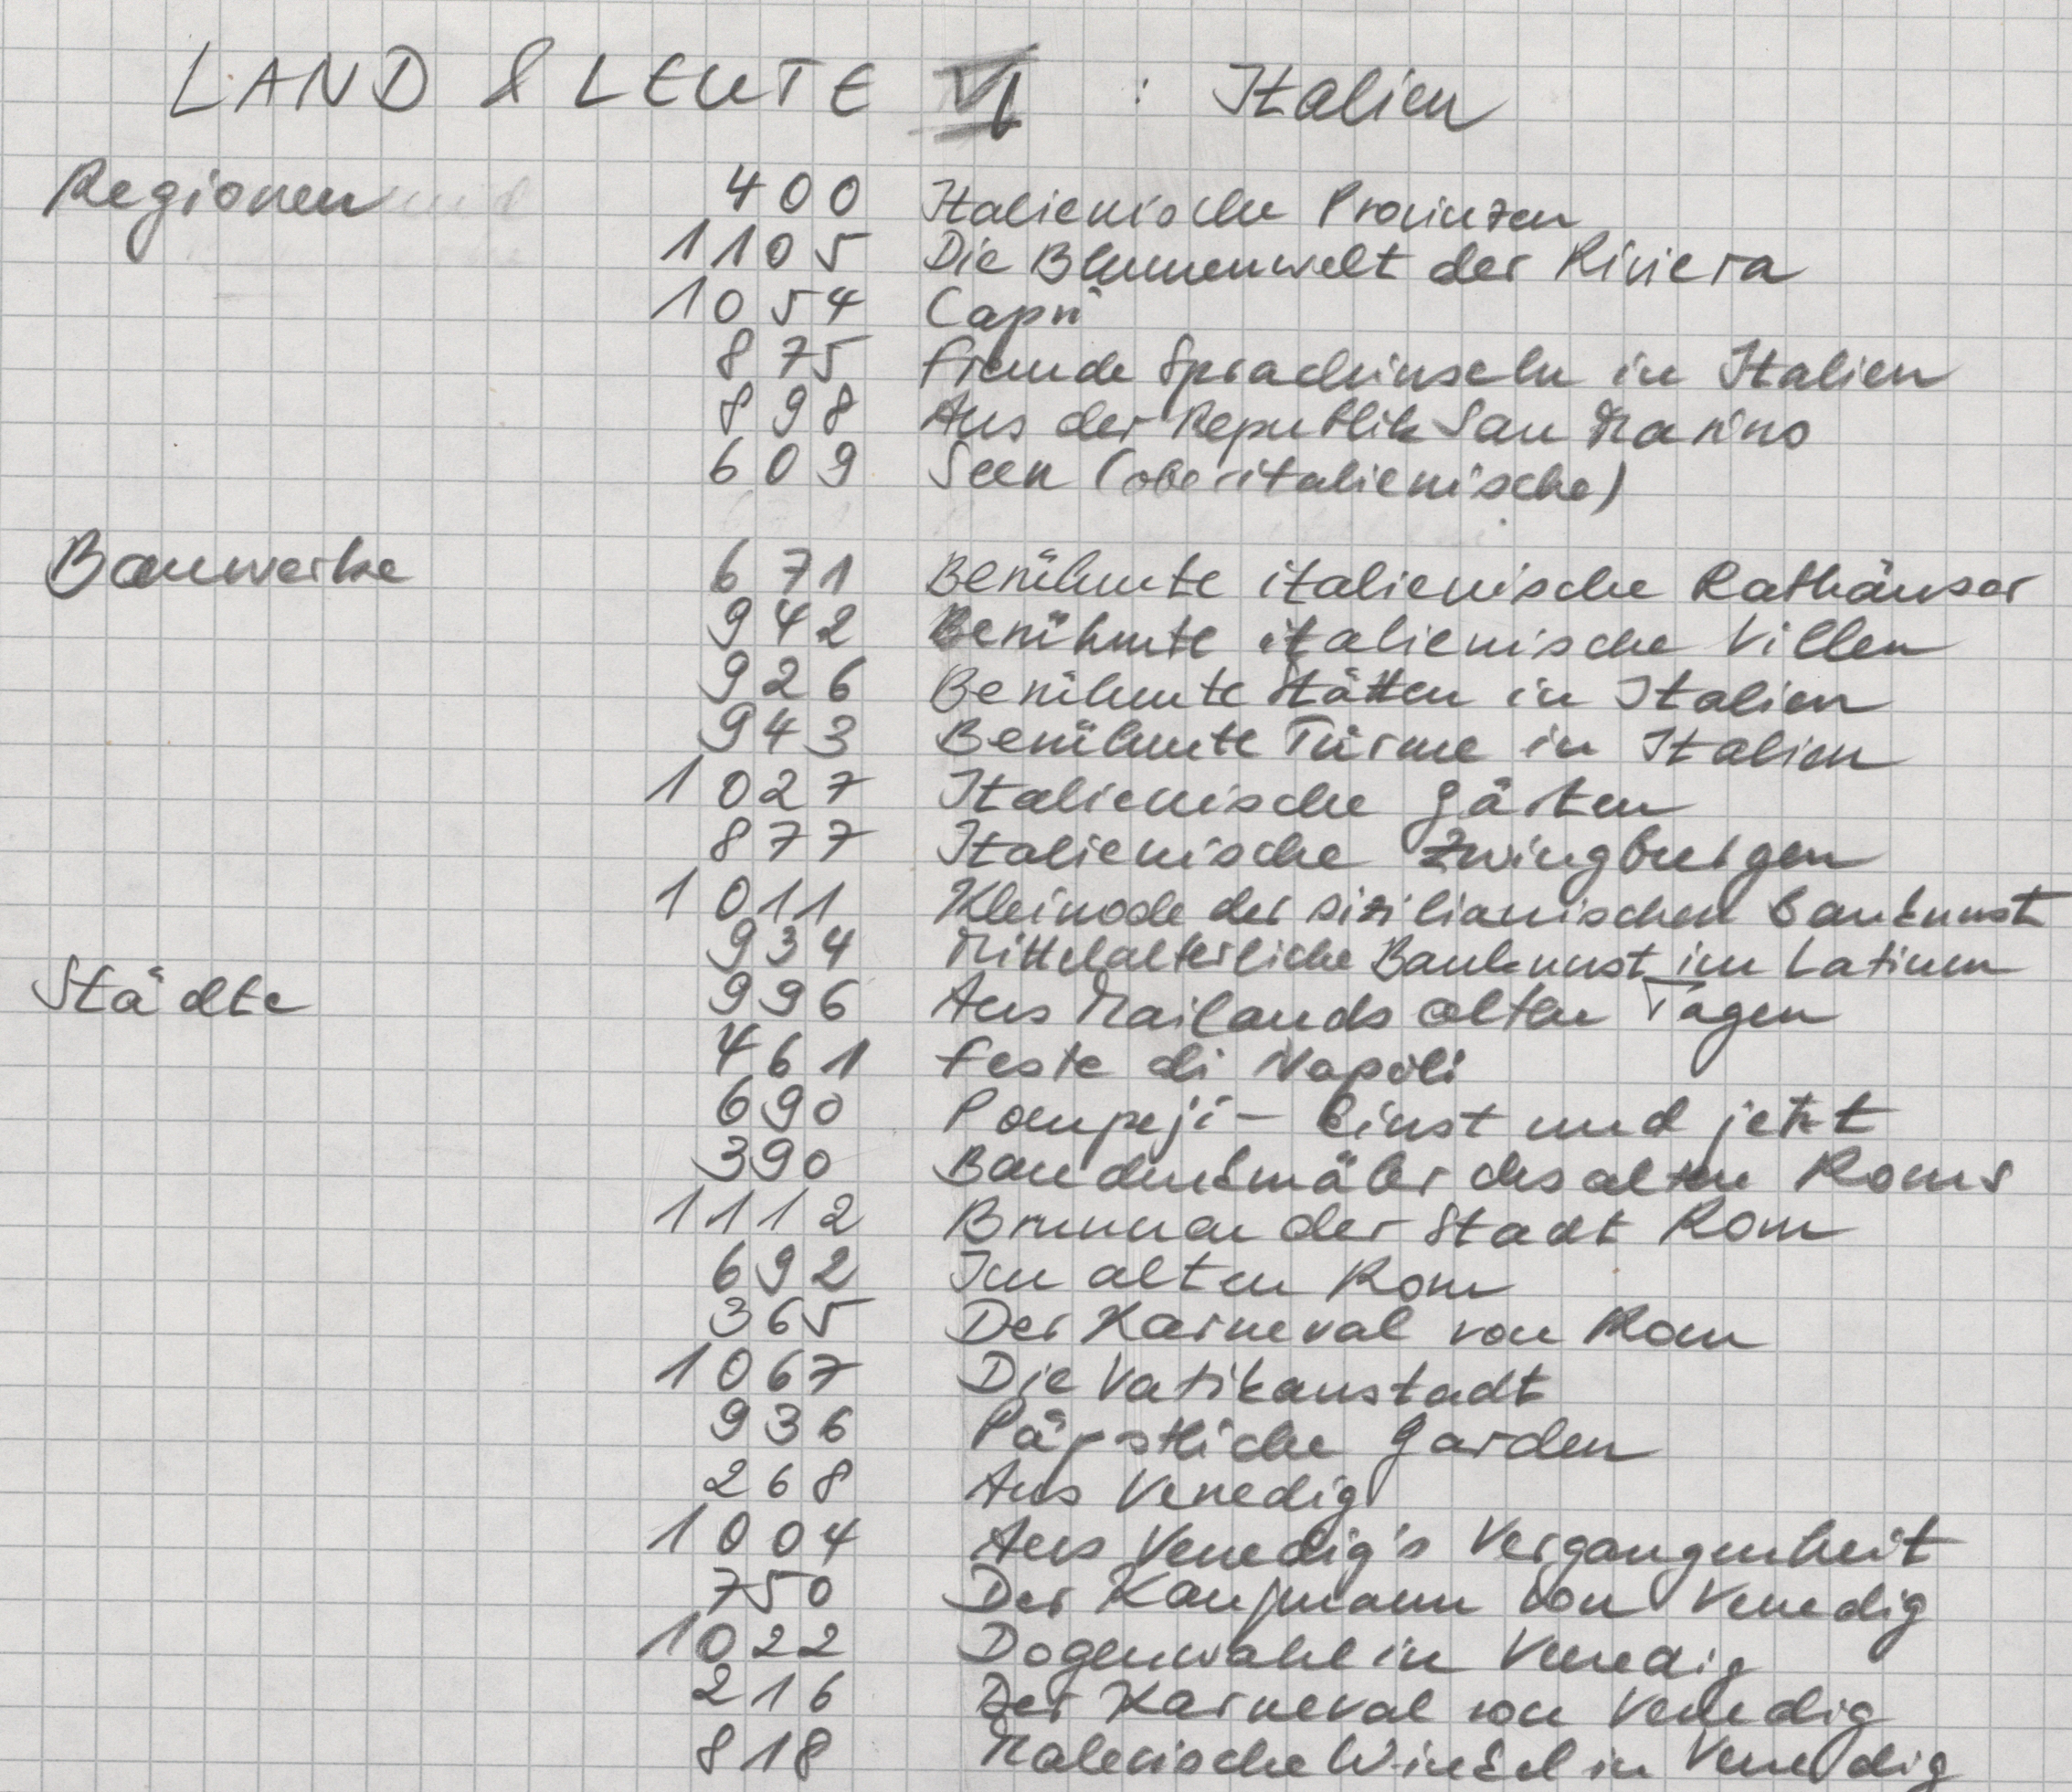 LAND & LEUTE VI : Italien
Regionen 400 Italienische Provinzen
1105 Die Blumenwelt der Riviera
1054 Capri
875 Fremde Sprachinseln in Italien
898 Aus der Republik San Marino
609 Seen (oberitalienische)
Bauwerke 671 Berühmte italienische Rathäuser
942 Berühmte italienische Villen
926 Berühmte Stätten in Italien
943 Berühmte Türme in Italien
1027 Italienische Gärten
877 Italienische Zwingburgen
1011 Kleinode der sizilianischen Baukunst
934 Mittelalterliche Baukunst im Latium
Städte 996 Aus Mailands alten Tagen
461 Feste di Napoli
690 Pompeji - Einst und jetzt
390 Baudenkmäler des alten Roms
1112 Brunnen der Stadt Rom
692 Im alten Rom
365 Der Karneval von Rom
1067 Die Vatikanstadt
936 Päpstliche Garden
268 Aus Venedig
1004 Aus Venedig's Vergangenheit
750 Der Kaufmann von Venedig
1022 Dogenwahl in Venedig
216 Der Karneval von Venedig
818 Malerische Winkel in Venedig